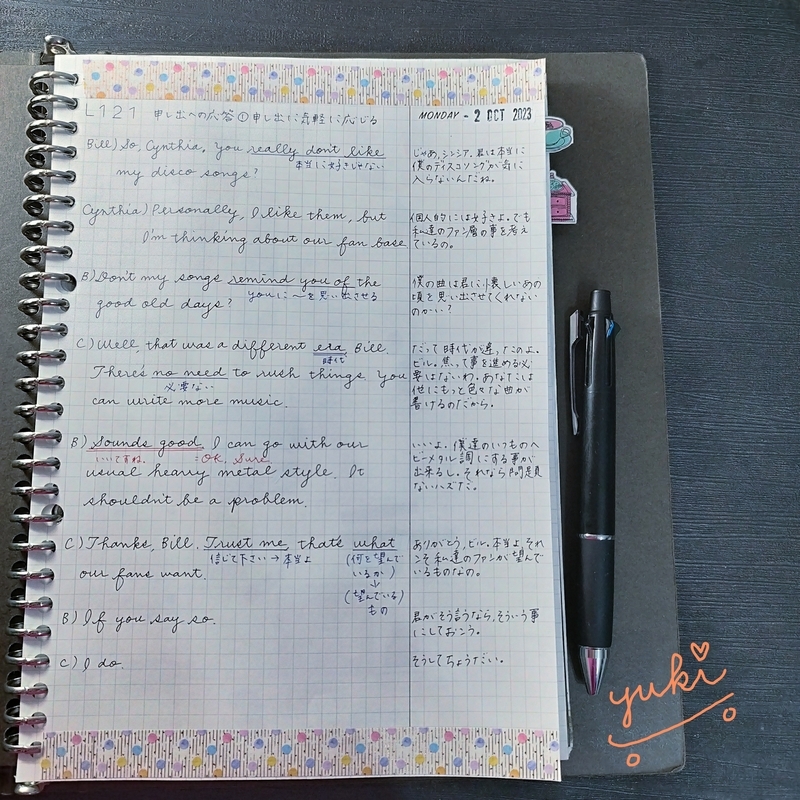 L121 申し出への応答①申し出に気軽に応じる
MONDAY - 2 OCT 2023
Bill) So, Cynthia, you really don't like
本当に好きじゃない
my disco songs?
じゃあ、シンシア、君は本当に
僕のディスコソングが気に
入らないんだね。
Cynthia) Personally, I like them, but
I'm thinking about our fan base
個人的には好きよ。でも
私達のファン層の事を考え
ているの。
B) Don't my songs remind you of the
youに〜を思い出させる
good old days?
僕の曲は君に懐しいあの
頃を思い出させてくれない
のかい?
C) Well, that was a different era Bill.
時代
There's no need to rush things. You
必要ない
can write more music.
だって時代が違ったのよ。
ビル。焦って事を進める必
要はないわ。あなたは
他にもっと色々な曲が
書けるのだから。
B) Sounds good. I can go with our
いいですね。 =OK, Sure.
usual hearry metal style. It
shouldn't be a problem.
いいよ。僕達のいつものヘ
ビーメタル調にする事が
出来るし。それなら問題
ないハズだ。
C) Thanks, Bill. Trust me, that's what
信じて下さい→本当よ
(何を望んで
いるか)
↓
(望んでいる)
もの
our fans want.
ありがとう、ビル。本当よ、それ
こそ私達のファンが望んで
いるものなの。
B) If you say so.
君がそう言うなら、そういう事
にしておこう。
C) I do.
そうしてちょうだい。
yuki